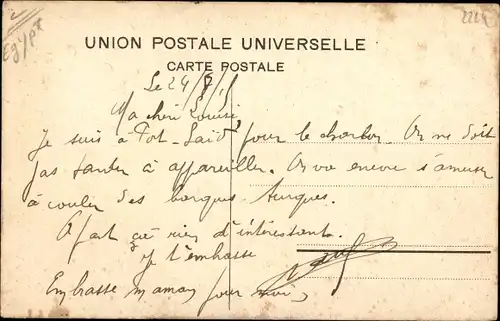 Egypt
UNION POSTALE UNIVERSELLE
CARTE POSTALE
Le 24/8/15
Ma chère Louise
Je suis à Port-Saïd pour le charbon. On ne doit
pas tarder à appareiller. On va encore s'amuser
à couler des barques turques.
A part ça rien d'intéressant.
Je t'embrasse
Embrasse maman pour moi,